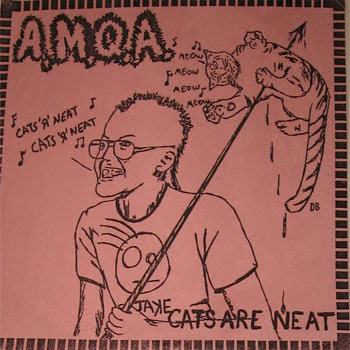 A.M.Q.A.
MEOW
MEOW
MEOW
MEOW
CATS 'Я' NEAT
CATS 'Я' NEAT
DB
TAKE
CATS ARE NEAT